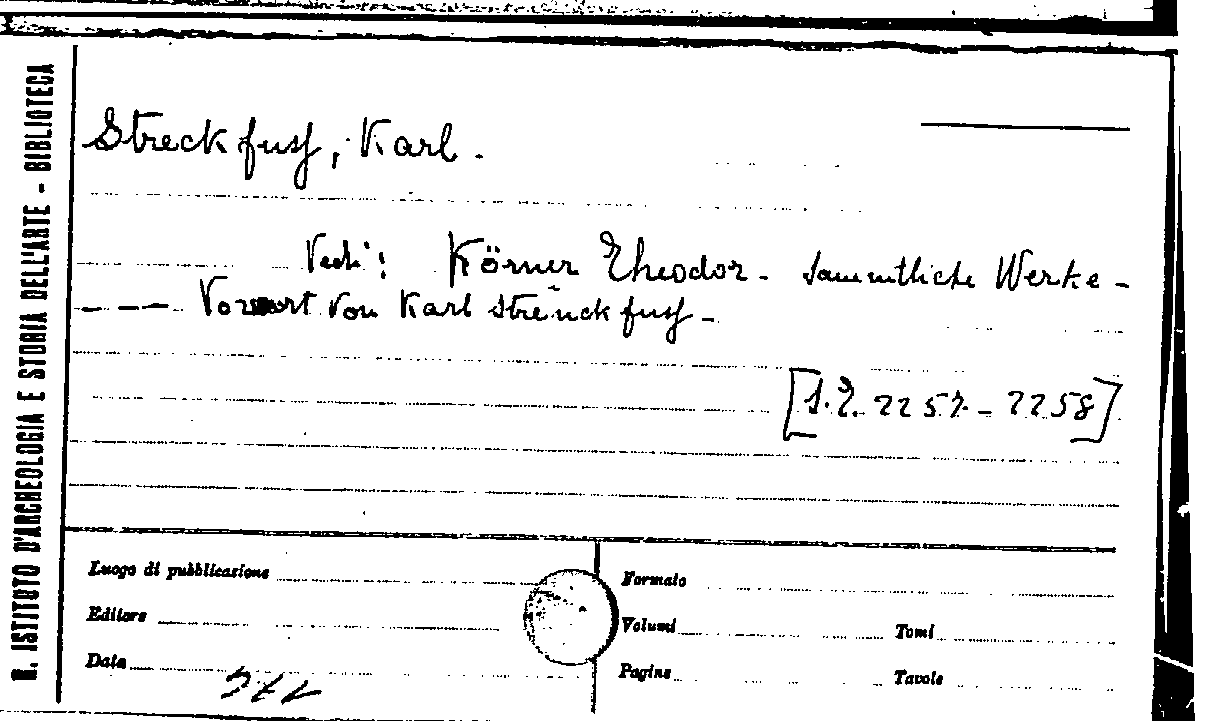 R. ISTITUTO D'ARCHEOLOGIA E STORIA DELL'ARTE - BIBLIOTECA
Streckfuss, Karl.
Vedi: Körner Theodor - Sammtliche Werke -
--- Vorwort von Karl Streuckfuss -
[1.2. 2257-2258]
Luogo di pubblicazione
Formato
Editore
Volumi
Tomi
Data
Pagine
Tavole